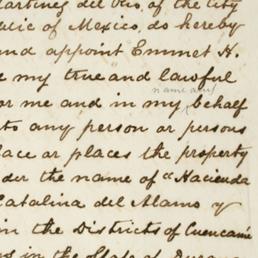 Martinez del Rio, of the City
public of Mexico, do hereby
and appoint Emmet H.
e my true and lawful
name and
or me and in my behalf
to any person or persons
lace or places the property
der the name of "Hacienda
Catalina del Alamo y
in the Districts of Cuencamé
in the State of Durang